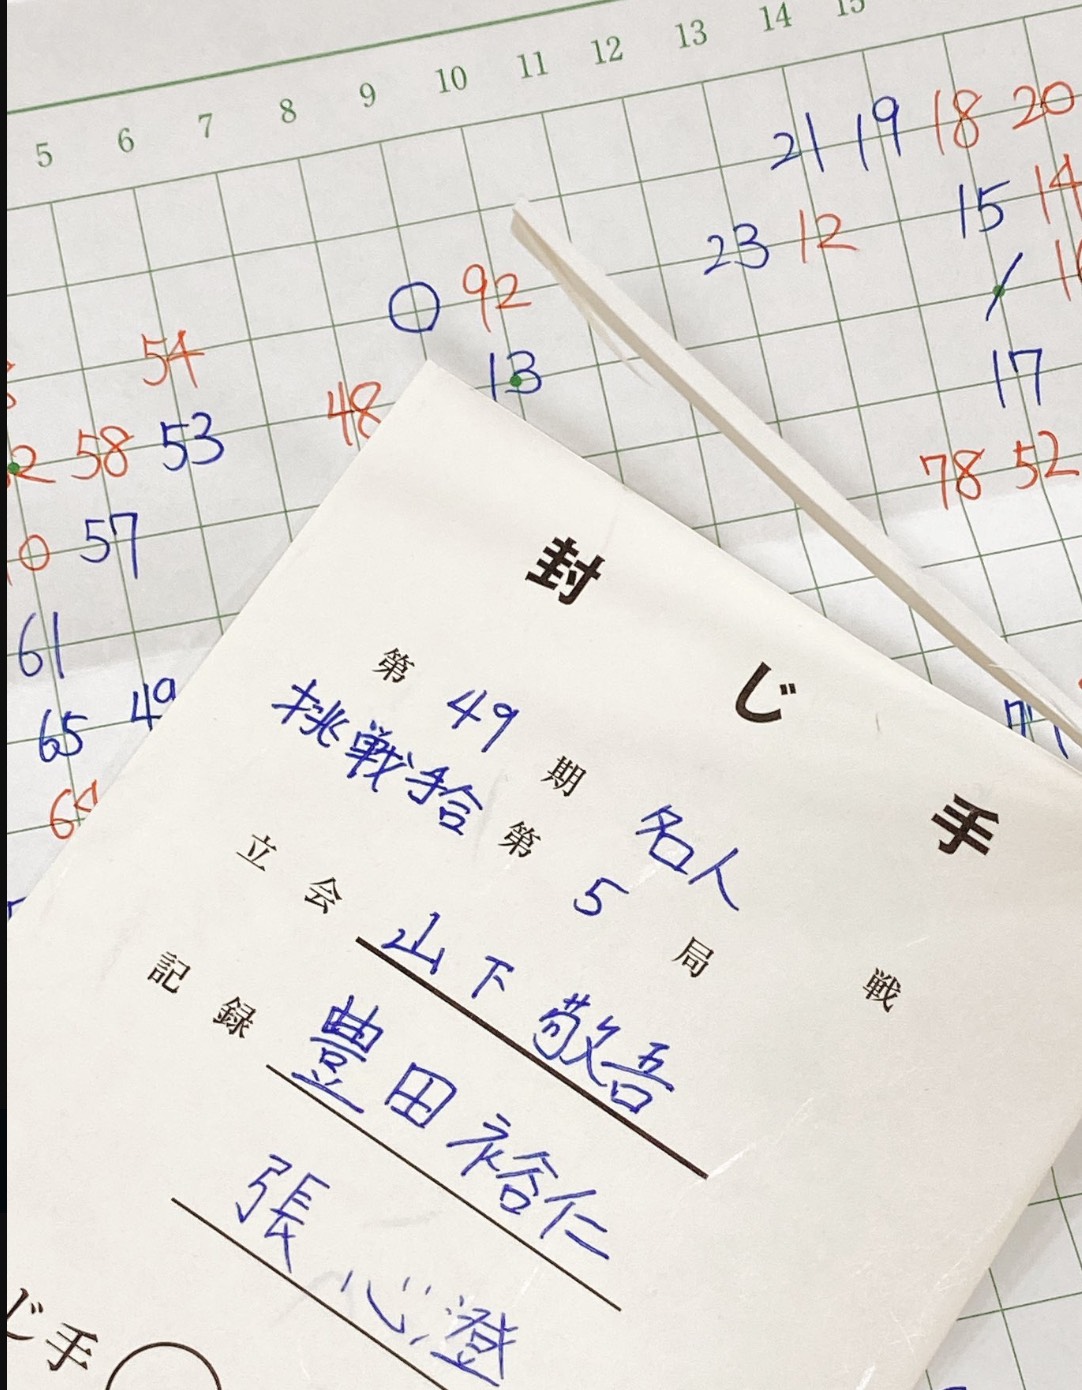 5 6 7 8 9 10 11 12 13 14 15
21 19 18 20
23 12 15 14
92
13
17
54
48
58 53
78 52
57
61
65 49
封じ手
第49期 名人戦
挑戦手合 第5局
立会 山下敬吾
記録 豊田裕仁
張心澄
じ手